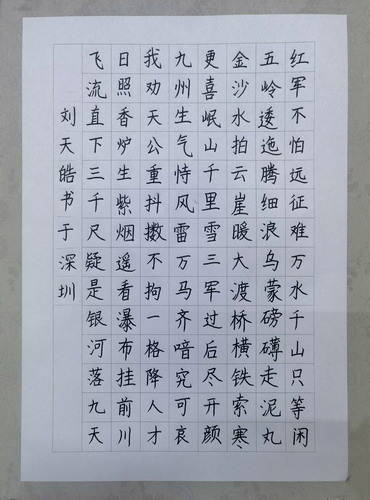 红军不怕远征难万水千山只等闲
五岭逶迤腾细浪乌蒙磅礴走泥丸
金沙水拍云崖暖大渡桥横铁索寒
更喜岷山千里雪三军过后尽开颜
九州生气恃风雷万马齐喑究可哀
我劝天公重抖擞不拘一格降人才
日照香炉生紫烟遥看瀑布挂前川
飞流直下三千尺疑是银河落九天
刘天皓书于深圳